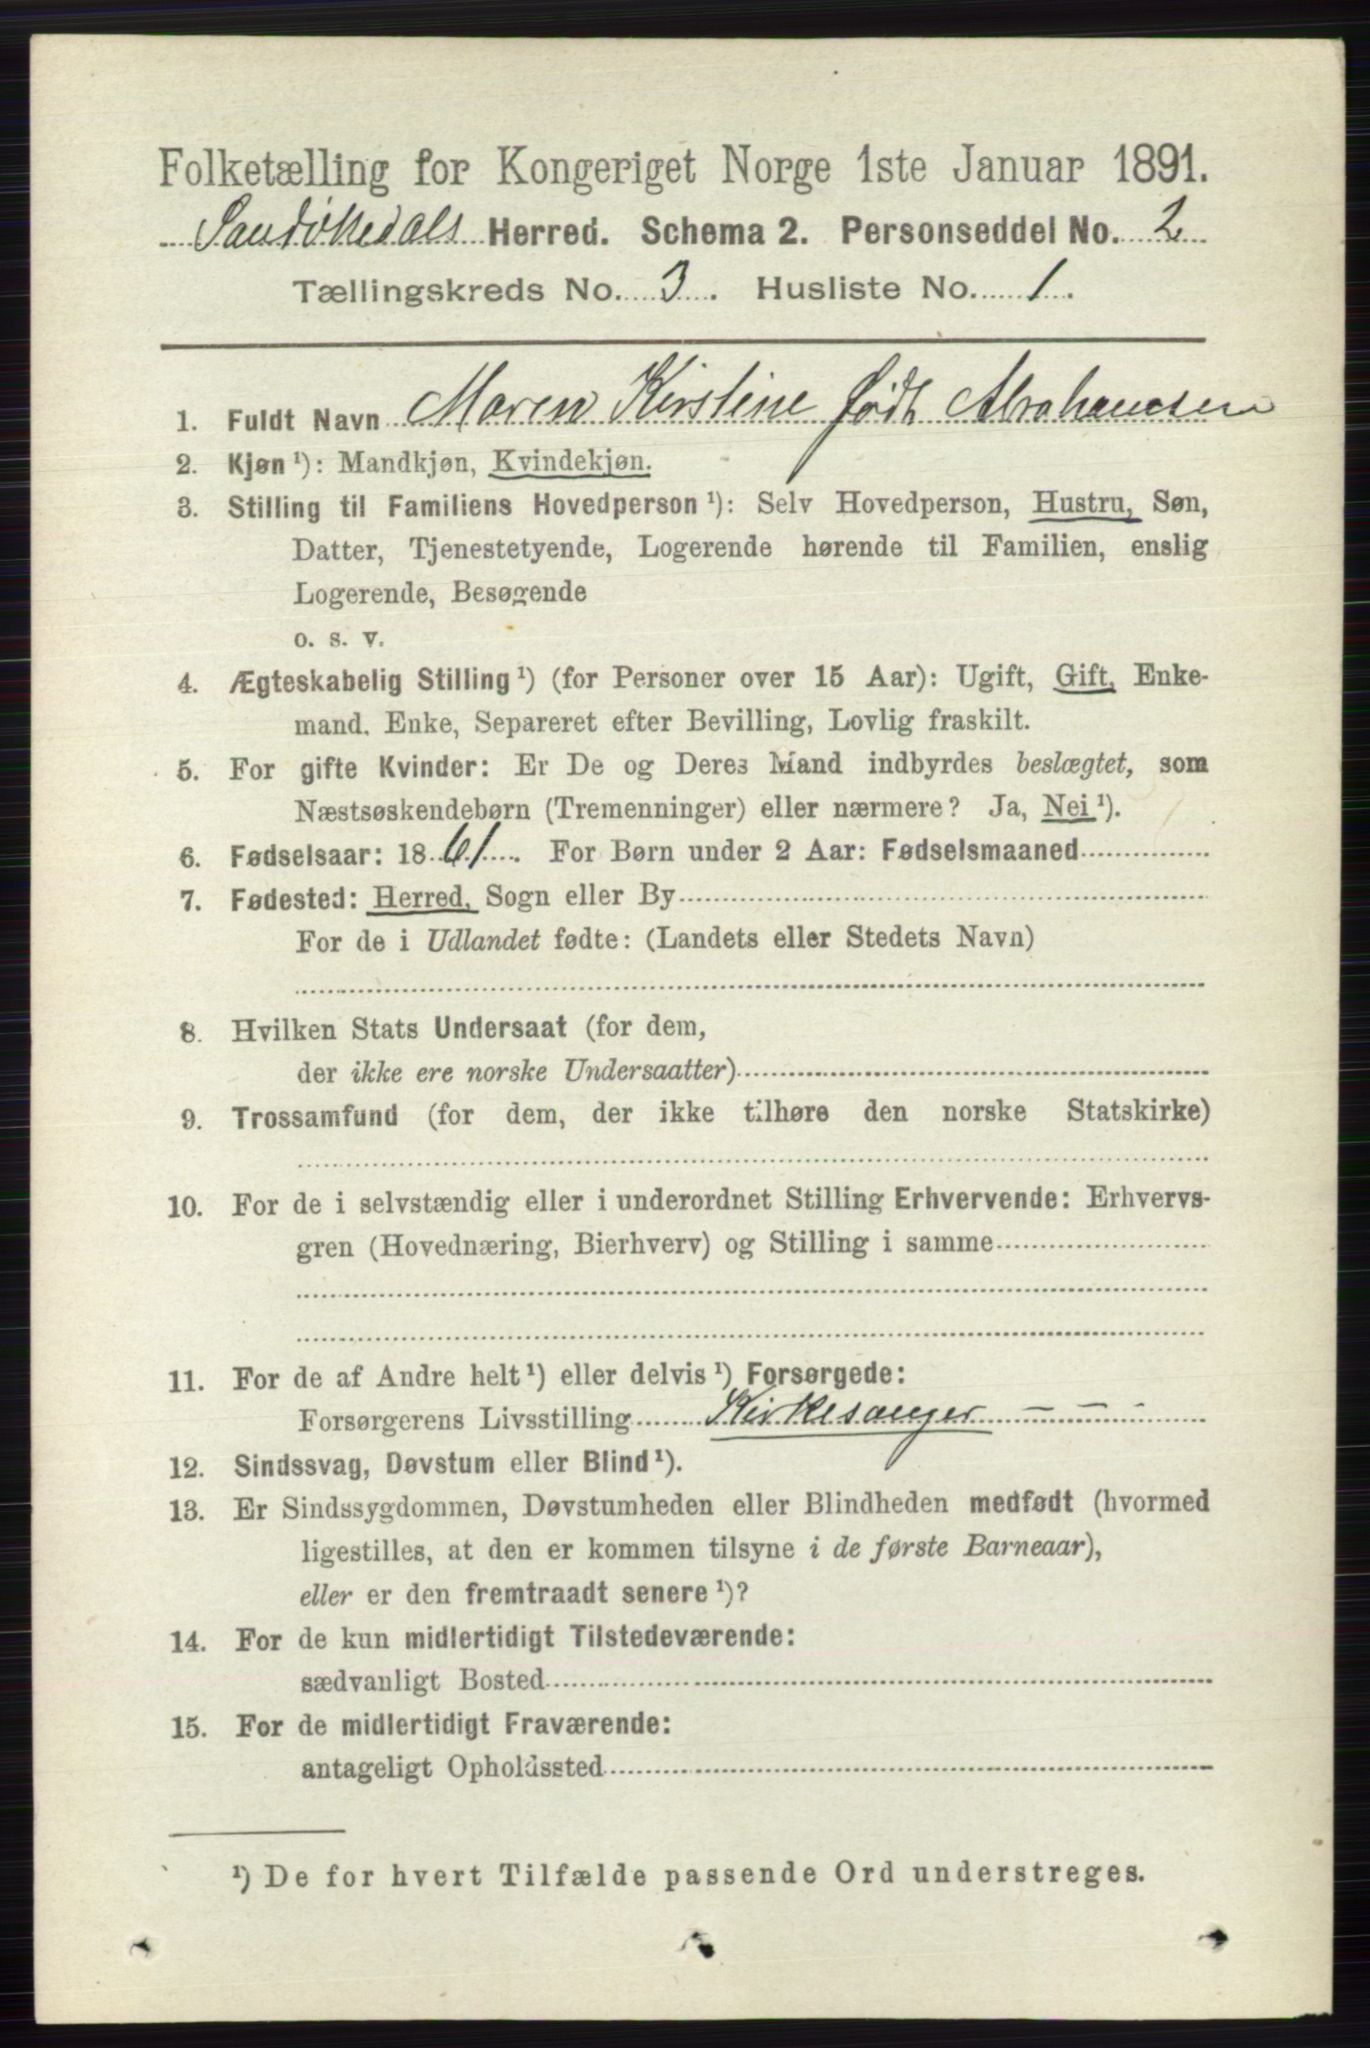 Folketælling for Kongeriget Norge 1ste Januar 1891.
Sandökedals Herred. Schema 2. Personseddel No. 2
Tællingskreds No. 3. Husliste No. 1.
1. Fuldt Navn Maren Kirstine født Abrahamsen
2. Kjøn¹): Mandkjøn, Kvindekjøn.
3. Stilling til Familiens Hovedperson¹): Selv Hovedperson, Hustru, Søn,
Datter, Tjenestetyende, Logerende hørende til Familien, enslig
Logerende, Besøgende
o. s. v.
4. Ægteskabelig Stilling¹) (for Personer over 15 Aar): Ugift, Gift, Enke-
mand. Enke, Separeret efter Bevilling, Lovlig fraskilt.
5. For gifte Kvinder: Er De og Deres Mand indbyrdes beslægtet, som
Næstsøskendebørn (Tremenninger) eller nærmere? Ja, Nei¹).
6. Fødselsaar: 1861. For Børn under 2 Aar: Fødselsmaaned
7. Fødested: Herred, Sogn eller By
For de i Udlandet fødte: (Landets eller Stedets Navn)
8. Hvilken Stats Undersaat (for dem,
der ikke ere norske Undersaatter)
9. Trossamfund (for dem, der ikke tilhøre den norske Statskirke)
10. For de i selvstændig eller i underordnet Stilling Erhvervende: Erhvervs-
gren (Hovednæring, Bierhverv) og Stilling i samme
11. For de af Andre helt¹) eller delvis¹) Forsørgede:
Forsørgerens Livsstilling Kirkesanger - - -
12. Sindssvag, Døvstum eller Blind¹).
13. Er Sindssygdommen, Døvstumheden eller Blindheden medfødt (hvormed
ligestilles, at den er kommen tilsyne i de første Barneaar),
eller er den fremtraadt senere¹)?
14. For de kun midlertidigt Tilstedeværende:
sædvanligt Bosted
15. For de midlertidigt Fraværende:
antageligt Opholdssted
¹) De for hvert Tilfælde passende Ord understreges.